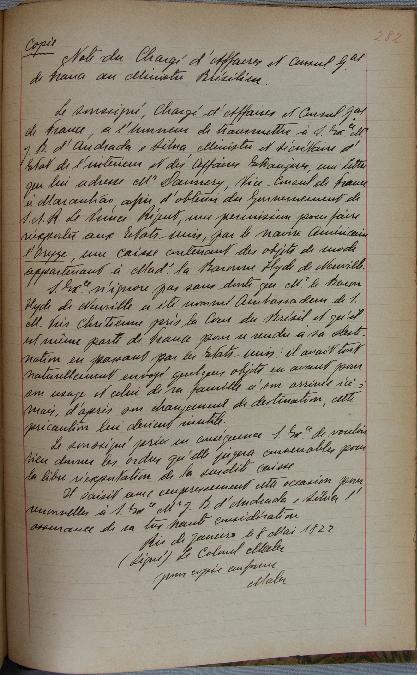 282
Copie
Note du Chargé d'affaires et consul Gal
de France au Ministre Brésilien.
Le soussigné, Chargé d'affaires et Consul Gal
de France, a l'honneur de transmettre à S. Exce Mr
J. B. d'Andrada e Silva Ministre et Secrétaire d'
Etat de l'intérieur et des Affaires Etrangères, une lettre
que lui adresse Mr Vice-Consul de France
à Maranhão, afin d'obtenir du Gouvernement de
S. A. R. le Prince Régent, une permission pour faire
réexporter aux Etats-Unis, par le navire Américain
une caisse contenant des objets de mode
appartenant à Mad. la Baronne Hyde de Neuville.
S. Exce n'ignore pas sans doute que Mr le Baron
Hyde de Neuville a été nommé Ambassadeur de S.
M. très Chrétienne près la Cour du Brésil et qu'il
est même parti de France pour se rendre à sa desti-
nation en passant par les Etats-Unis: il avait tout
naturellement envoyé quelques objets en avant pour
son usage et celui de sa famille à son arrivée ici;
mais, d'après son changement de destination, cette
précaution lui devient inutile.
Le soussigné prie en conséquence S. Exce de vouloir
bien donner les ordres qu'elle jugera convenables pour
la libre réexportation de la susdite caisse.
Il saisit avec empressement cette occasion pour
renouveller à S. Exce Mr J. B. d'Andrada e Silva l'
assurance de sa très haute considération
Rio de Janeiro le 8 Mai 1822
(signé) Le Colonel Maler
pour copie conforme
Maler